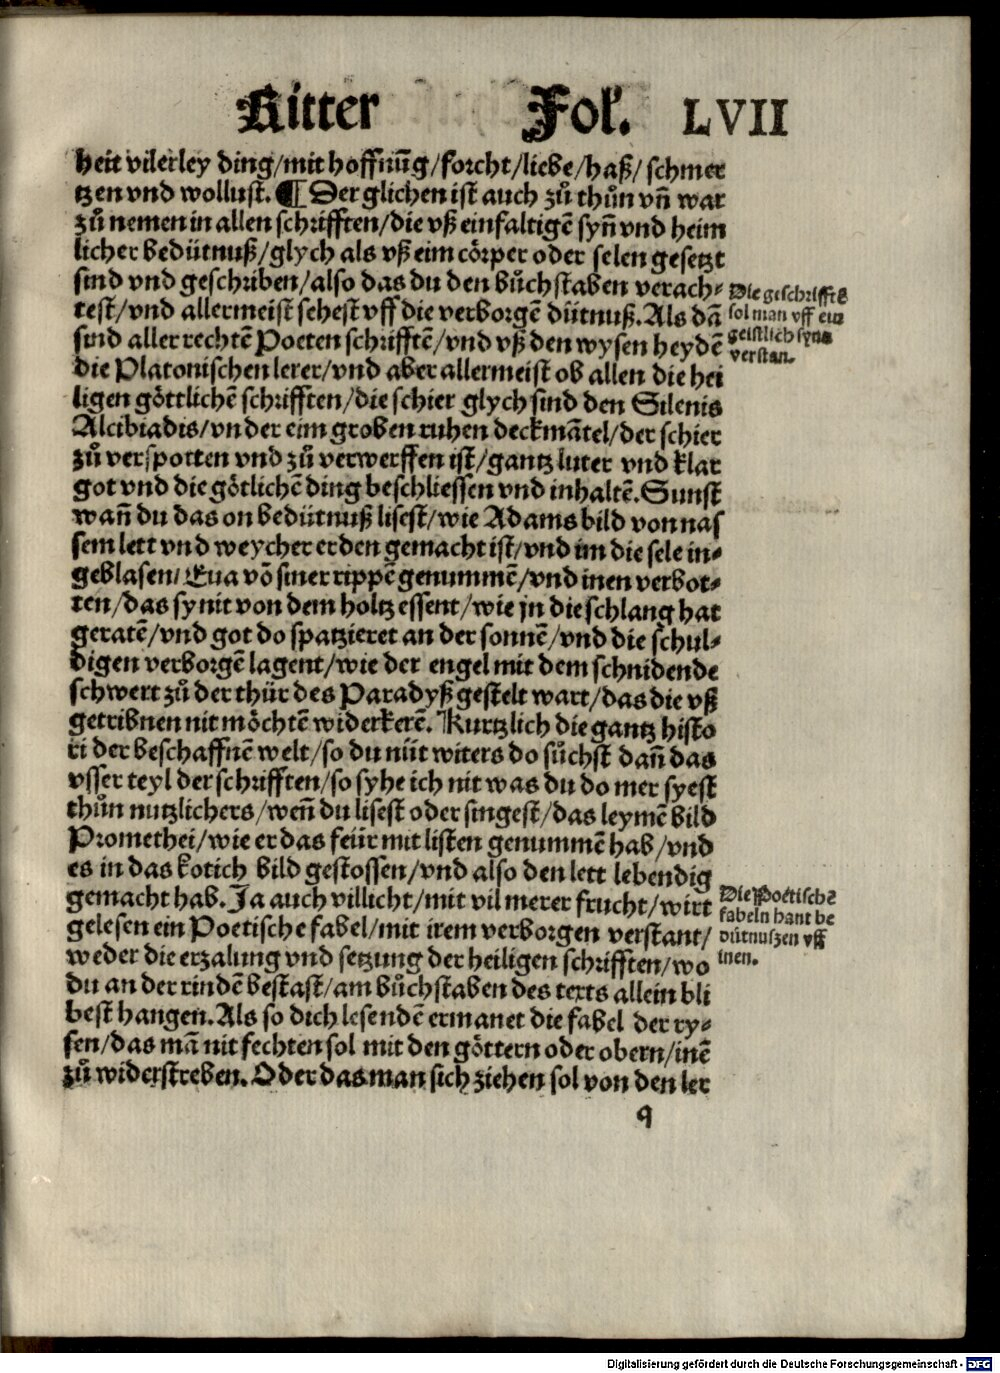 Ritter Fol. LVII
heit vilerley ding/mit hoffnũg/forcht/liebe/haß/schmer
tzen vnd wollust. ¶ Der glichen ist auch zů thůn vñ war
zů nemen in allen schrifften/die vß einfaltigẽ syñ vnd heim
licher bedütnuß/glych als vß eim cörper oder selen gesetzt
sind vnd geschriben/also das du den bůchstaben verach⸗
test/vnd allermeist sehest vff die verborgẽ dütnuß. Als dã
sind aller rechtẽ Poeten schrifftẽ/vnd vß den wysen heydẽ
die Platonischen lerer/vnd aber allermeist ob allen die hei
ligen göttlichẽ schrifften/die schier glych sind den Silenis
Alcibiadis/vnder eim groben ruhen deckmãtel/der schier
zů verspotten vnd zů verwerffen ist/gantz luter vnd klar
got vnd die götlichẽ ding beschliessen vnd inhaltẽ. Sunst
wañ du das on bedütnuß lisest/wie Adams bild von nas
sem lett vnd weycher erden gemacht ist/vnd im die sele in⸗
geblasen/Eua võ siner rippẽ genummẽ/vnd inen verbot⸗
ten/das sy nit von dem holtz essent/wie jn die schlang hat
geratẽ/vnd got do spatzieret an der sonnẽ/vnd die schul⸗
digen verborgẽ lagent/wie der engel mit dem schnidende
schwert zů der thür des Paradyß gestelt wart/das die vß
getribnen nit möchtẽ widerkerẽ. Kurtzlich die gantz histo
ri der beschaffnẽ welt/so du nüt witers do sůchst dañ das
vsser teyl der schrifften/so syhe ich nit was du do mer syest
thůn nutzlichers/weñ du lisest oder singest/das leymẽ bild
Promethei/wie er das feür mit listen genummẽ hab/vnd
es in das kotich bild gestossen/vnd also den lett lebendig
gemacht hab. Ja auch villicht/mit vil merer frucht/wirt
gelesen ein Poetische fabel/mit irem verborgen verstant/
weder die erzalung vnd setzung der heiligen schrifften/wo
du an der rindẽ bestast/am bůchstaben des texts allein bli
best hangen. Als so dich lesendẽ ermanet die fabel der ry⸗
sen/das mã nit fechten sol mit den göttern oder obern/inẽ
zů widerstreben. Oder das man sich ziehen sol von den ler
q
Die geschrifftẽ
sol man vff ein
geistlich syñ
verstan.
Die Poëtischẽ
fabeln hant be
dütnuszen vff
inen.
Digitalisierung gefördert durch die Deutsche Forschungsgemeinschaft - DFG